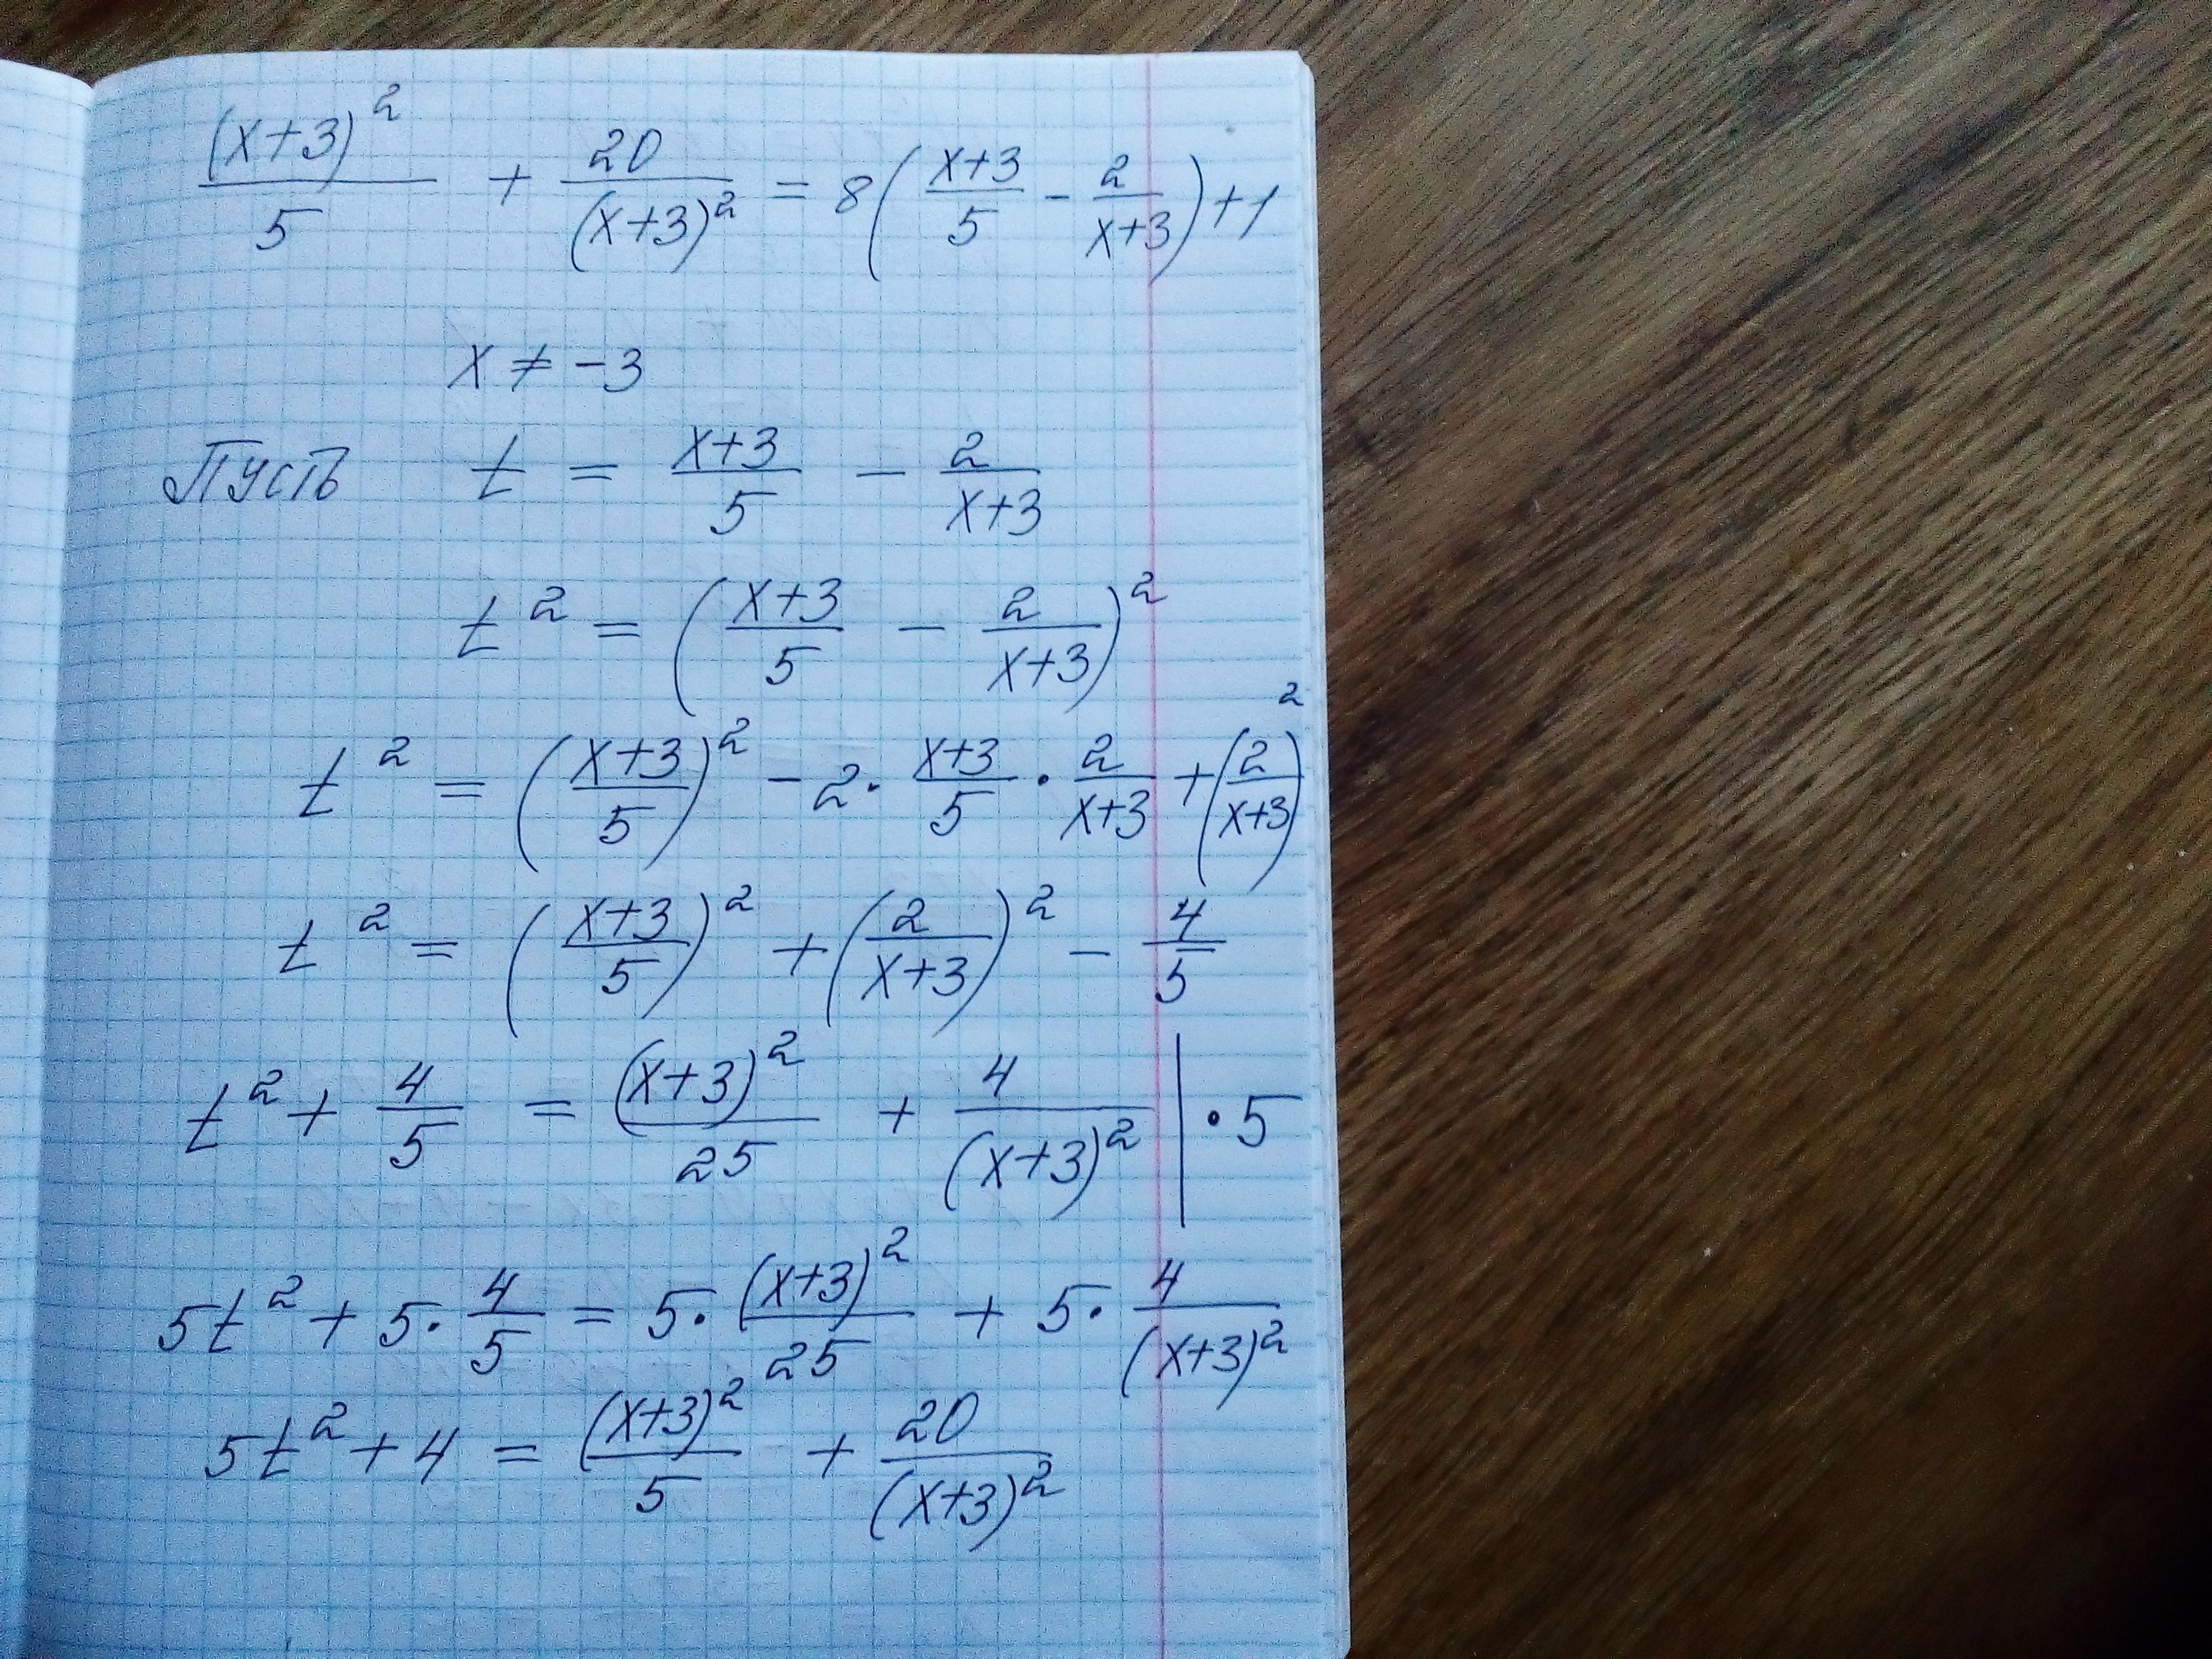 (x+3)²/5 + 20/(x+3)² = 8((x+3)/5 - 2/(x+3)) + 1
x ≠ -3
Пусть t = (x+3)/5 - 2/(x+3)
t² = ((x+3)/5 - 2/(x+3))²
t² = ((x+3)/5)² - 2 · (x+3)/5 · 2/(x+3) + (2/(x+3))²
t² = ((x+3)/5)² + (2/(x+3))² - 4/5
t² + 4/5 = (x+3)²/25 + 4/(x+3)² | · 5
5t² + 5 · 4/5 = 5 · (x+3)²/25 + 5 · 4/(x+3)²
5t² + 4 = (x+3)²/5 + 20/(x+3)²